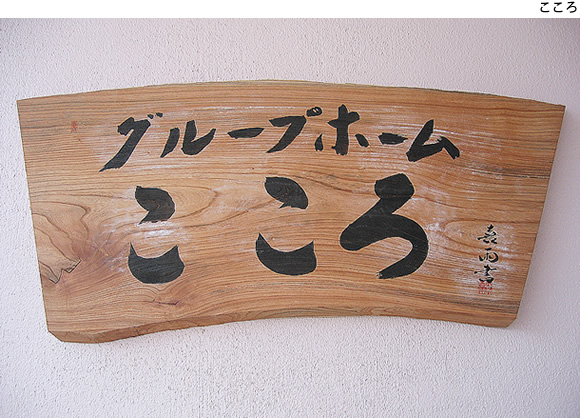 こころ
グループホーム
こころ
喜雨書